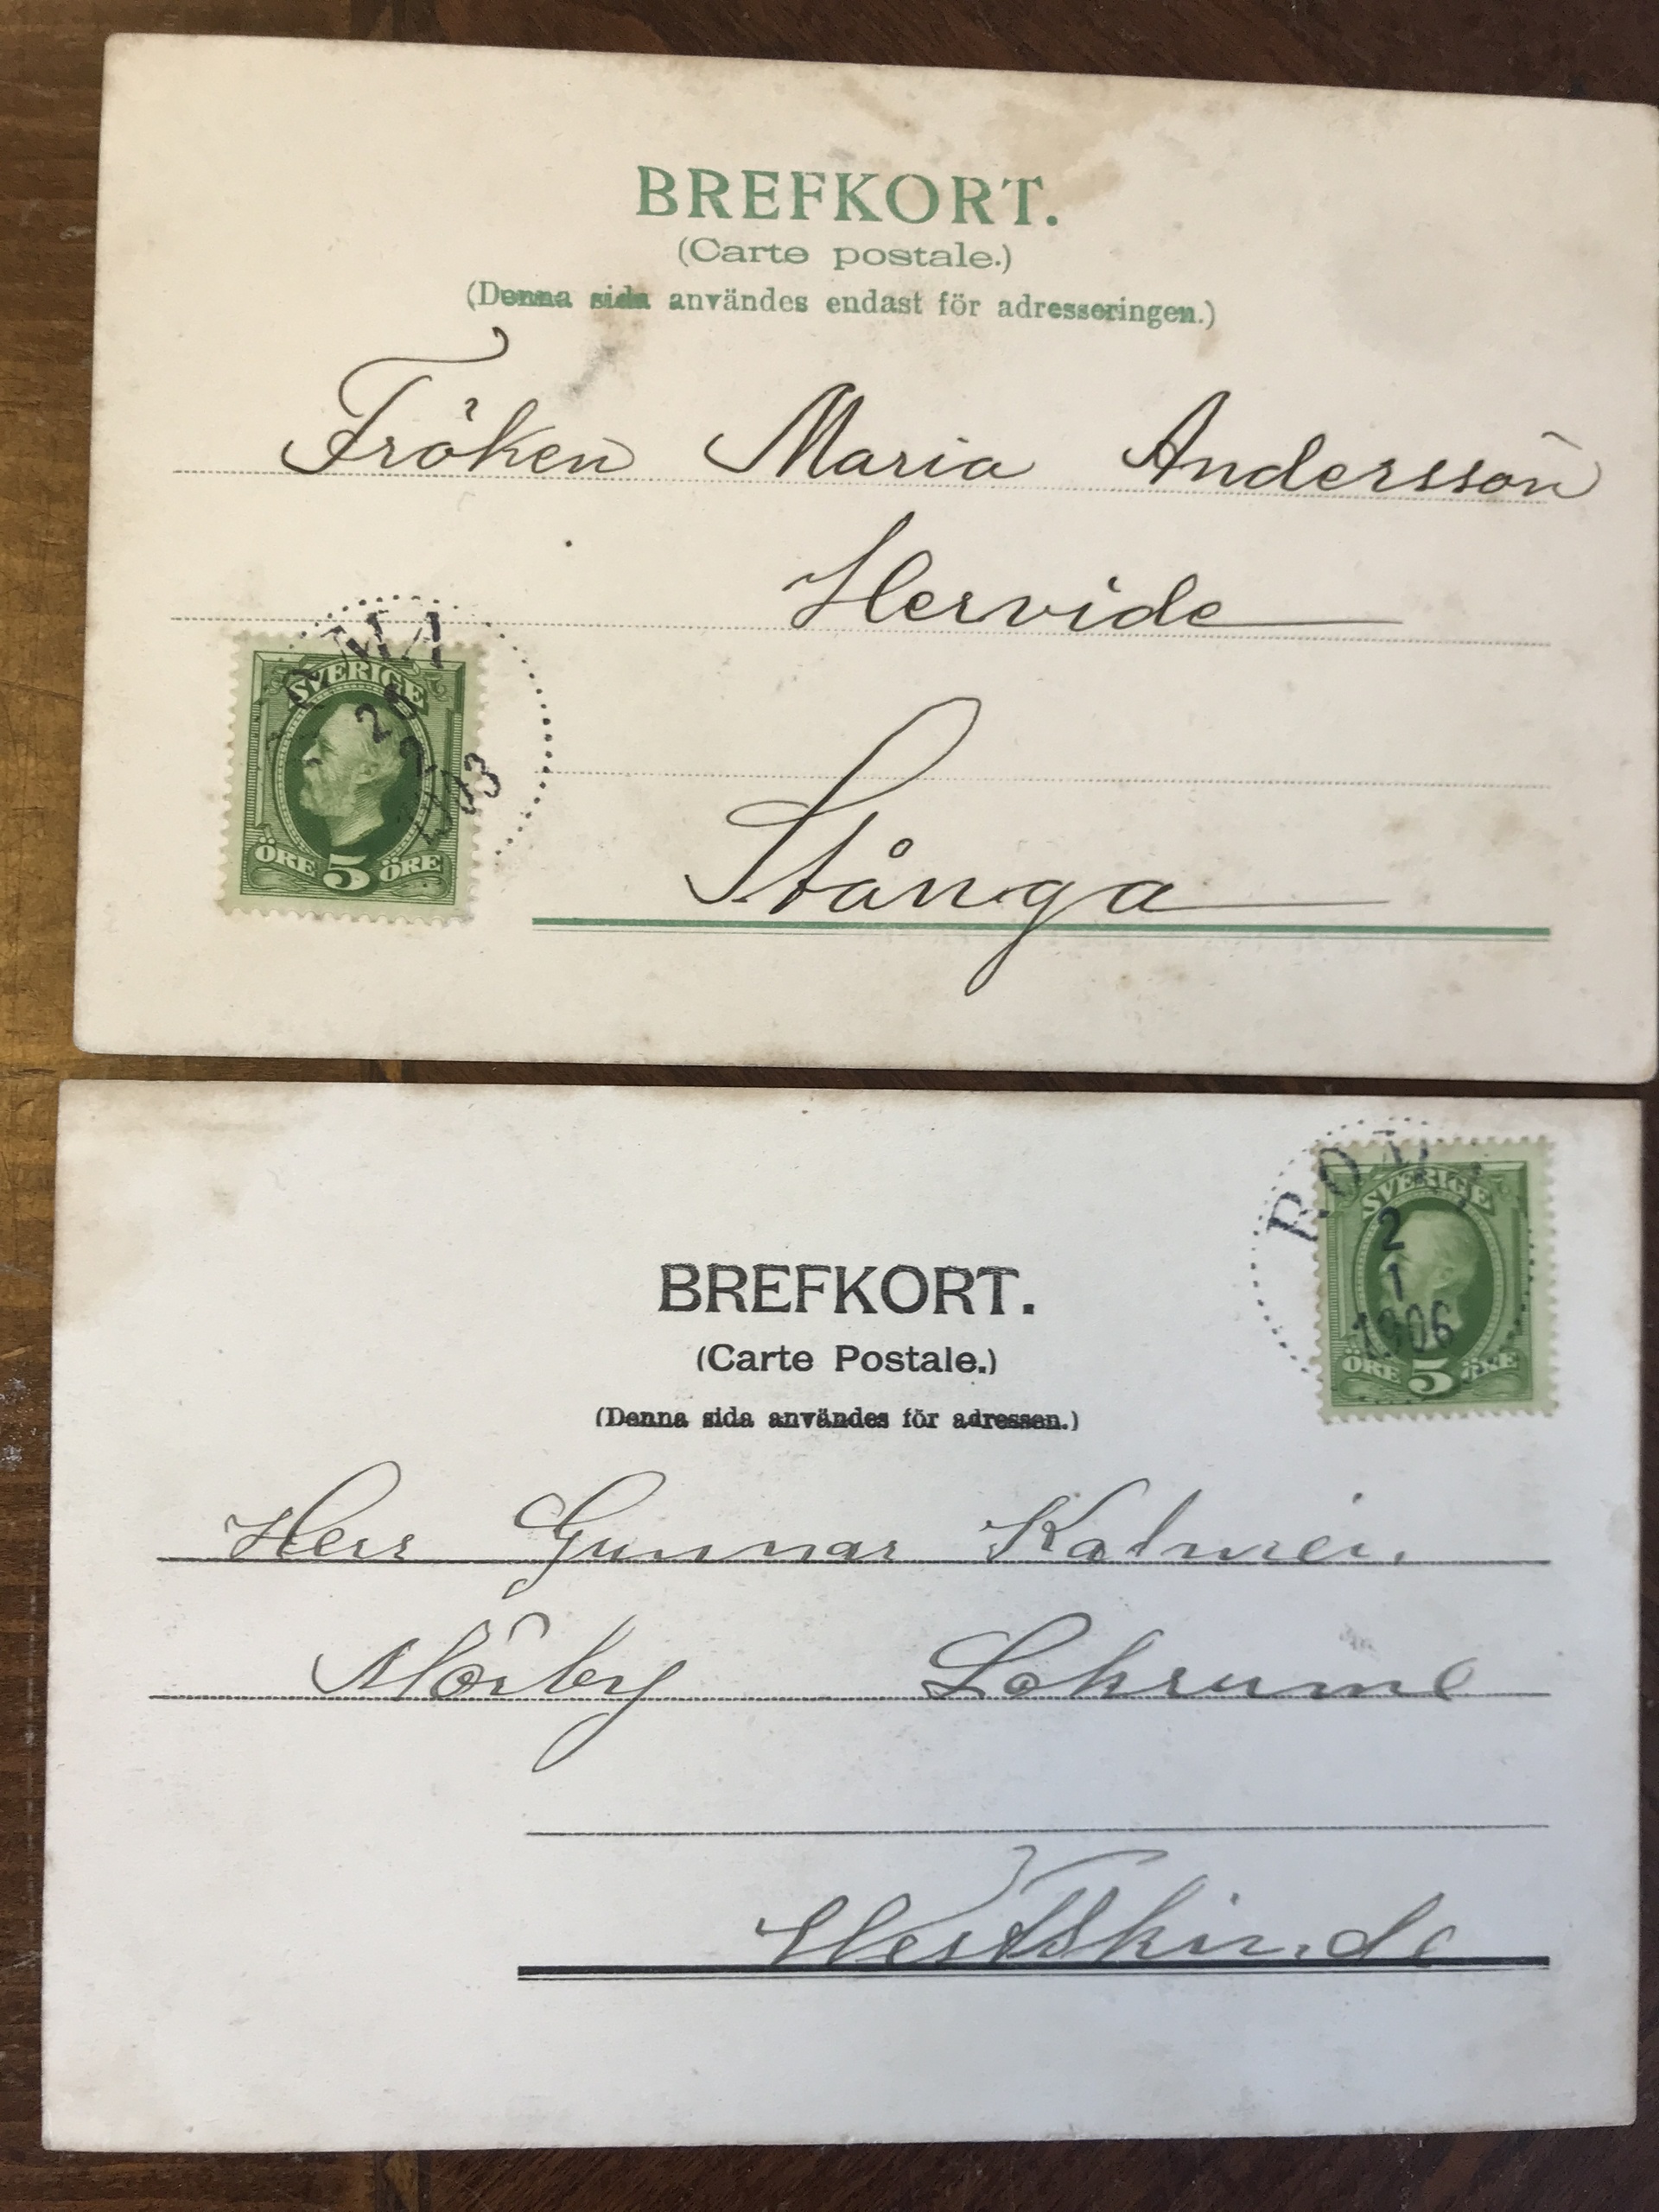 BREFKORT.
(Carte postale.)
(Denna sida användes endast för adresseringen.)
Fröken Maria Andersson
Hervide
Stånga
SVERIGE
ÖRE 5 ÖRE
1903
BREFKORT.
(Carte Postale.)
(Denna sida användes för adressen.)
SVERIGE
2
1
1906
ÖRE 5 ÖRE
Herr Gunnar
Lokrume